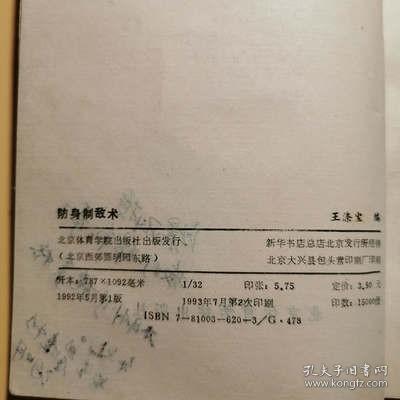 防身制敌术
王涤尘 编
北京体育学院出版社出版发行
新华书店总店北京发行所经销
(北京西郊圆明园东路)
北京大兴县包头营印刷厂印刷
开本:787×1092毫米 1/32 印张:5.75 定价:3.90元
1992年5月第1版 1993年7月第2次印刷 印数:15000册
ISBN 7—81003—620—3/G·478
孔夫子旧书网
www.kongfz.com